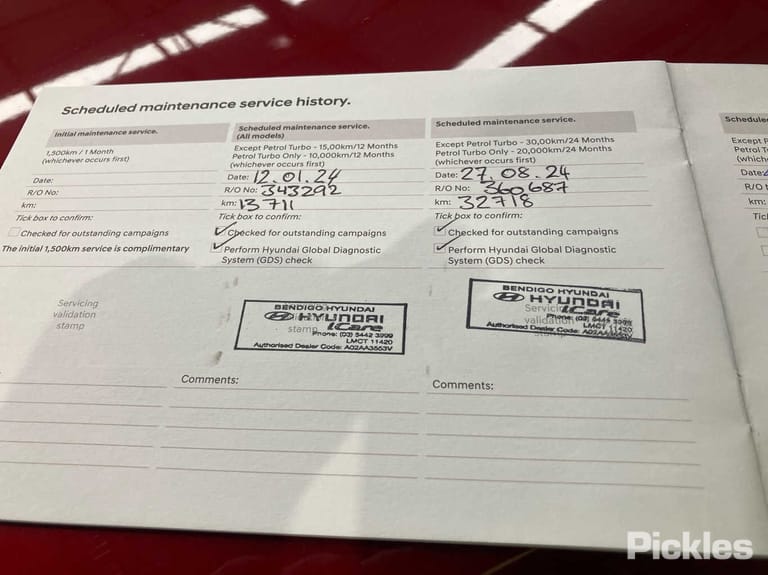 Scheduled maintenance service history.
Initial maintenance service.
1,500km / 1 Month
(whichever occurs first)
Date:
R/O No:
km:
Tick box to confirm:
Checked for outstanding campaigns
The initial 1,500km service is complimentary
Servicing
validation
stamp
Scheduled maintenance service.
(All models)
Except Petrol Turbo - 15,00km/12 Months
Petrol Turbo Only - 10,000km/12 Months
(whichever occurs first)
Date: 12.01.24
R/O No: 343292
km: 13711
Tick box to confirm:
Checked for outstanding campaigns
Perform Hyundai Global Diagnostic
System (GDS) check
BENDIGO HYUNDAI
HYUNDAI
stamp iCare
Phone: (03) 5442 3999
LMCT 11420
Authorised Dealer Code: A02AA3553V
Comments:
Scheduled maintenance service.
Except Petrol Turbo - 30,00km/24 Months
Petrol Turbo Only - 20,000km/24 Months
(whichever occurs first)
Date: 27.08.24
R/O No: 360687
km: 32718
Tick box to confirm:
Checked for outstanding campaigns
Perform Hyundai Global Diagnostic
System (GDS) check
BENDIGO HYUNDAI
HYUNDAI
Servicing iCare
validation Phone: (03)
LMCT 11420
Authorised Dealer Code:
Comments:
Schedule
Except P
Petrol T
(which
Date:
R/O N
km:
Tick
Pickles